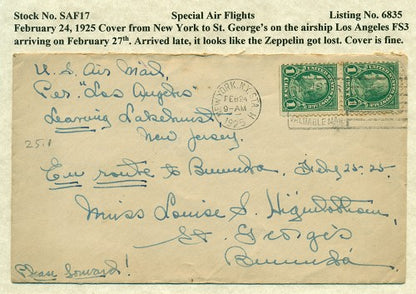 Stock No. SAF17 Special Air Flights Listing No. 6835
February 24, 1925 Cover from New York to St. George's on the airship Los Angeles FS3
arriving on February 27th. Arrived late, it looks like the Zeppelin got lost. Cover is fine.
U.S. Air Mail,
Per "Los Angeles"
Leaving Lakehurst,
New Jersey.
NEW YORK, N.Y. STA. H
FEB 24
9-AM
1925
VALUABLE MAIL
1 1
25.1
En route to Bermuda, Feby 25-25.
Miss Louise S. Higinbotham,
St. George's
Bermuda
Please forward!